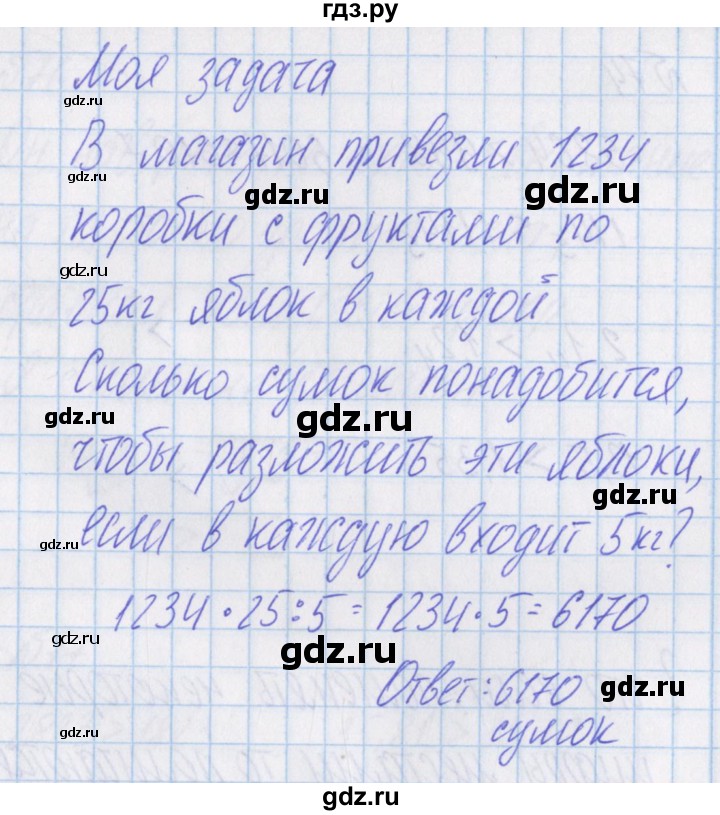 гдз.ру
Моя задача
gdz.ru
В магазин привезли 1234
gdz.ru
gdz.ru
gdz.ru
коробки с фруктами по
gdz.ru
25кг яблок в каждой
Сколько сумок понадобится,
gdz.ru
gdz.ru
чтобы разложить эти яблоки,
gdz.ru
если в каждую входит 5кг?
gdz.ru
1234·25:5=1234·5=6170
gdz.ru
gdz.ru
Ответ:6170
gdz.ru
сумок
gdz.ru
gdz.ru